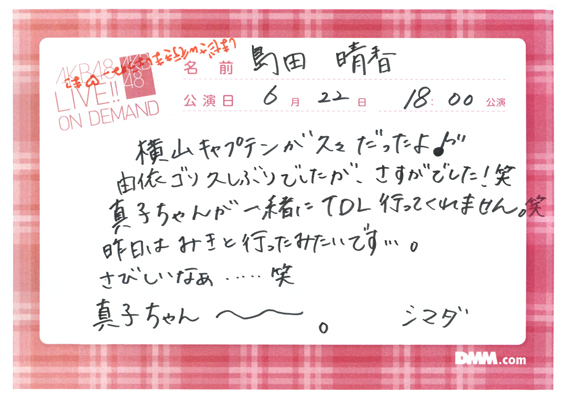 AKB48
LIVE!!
ON DEMAND
AKB
48
名前 島田 晴香
公演日 6月22日 18:00 公演
横山キャプテンが久々だったよ♪
由依ゴリ久しぶりでしたが、さすがでした！笑
真子ちゃんが一緒にTDL行ってくれません。笑
昨日はみきと行ったみたいです…。
さびしいなぁ……笑
真子ちゃん〜〜。 シマダ
DMM.com